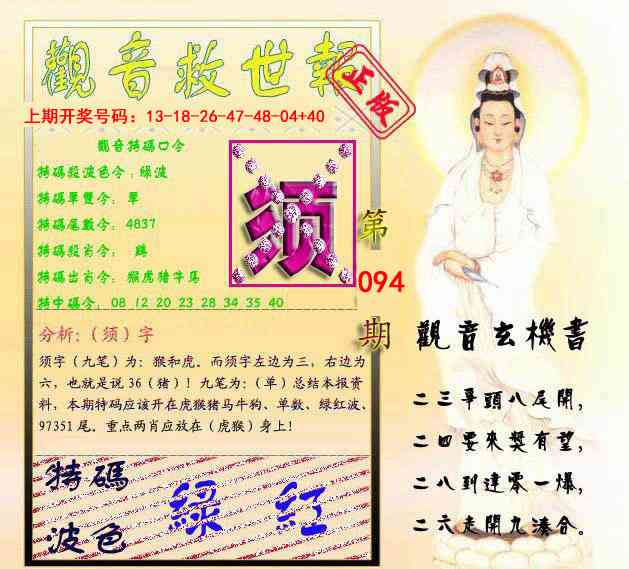 觀音救世報
正版
上期开奖号码：13-18-26-47-48-04+40
觀音特碼口令
特碼殺波色令：綠波
特碼單雙令：單
特碼尾數令：4837
特碼殺肖令：鷄
特碼出肖令：猴虎猪牛馬
特中碼令：08 12 20 23 28 34 35 40
须
第
094
期
分析：（须）字
须字（九笔）为：猴和虎。而须字左边为三，右边为
六，也就是说 36（猪）！九笔为：（单）总结本报资
料，本期特码应该开在虎猴猪马牛狗、单数、绿红波、
97351 尾。重点两肖应放在（虎猴）身上！
特碼
波色
綠 紅
觀音玄機書
二三爭頭八尾開，
二四要來獎有望，
二八到達零一爆，
二六走開九湊合。